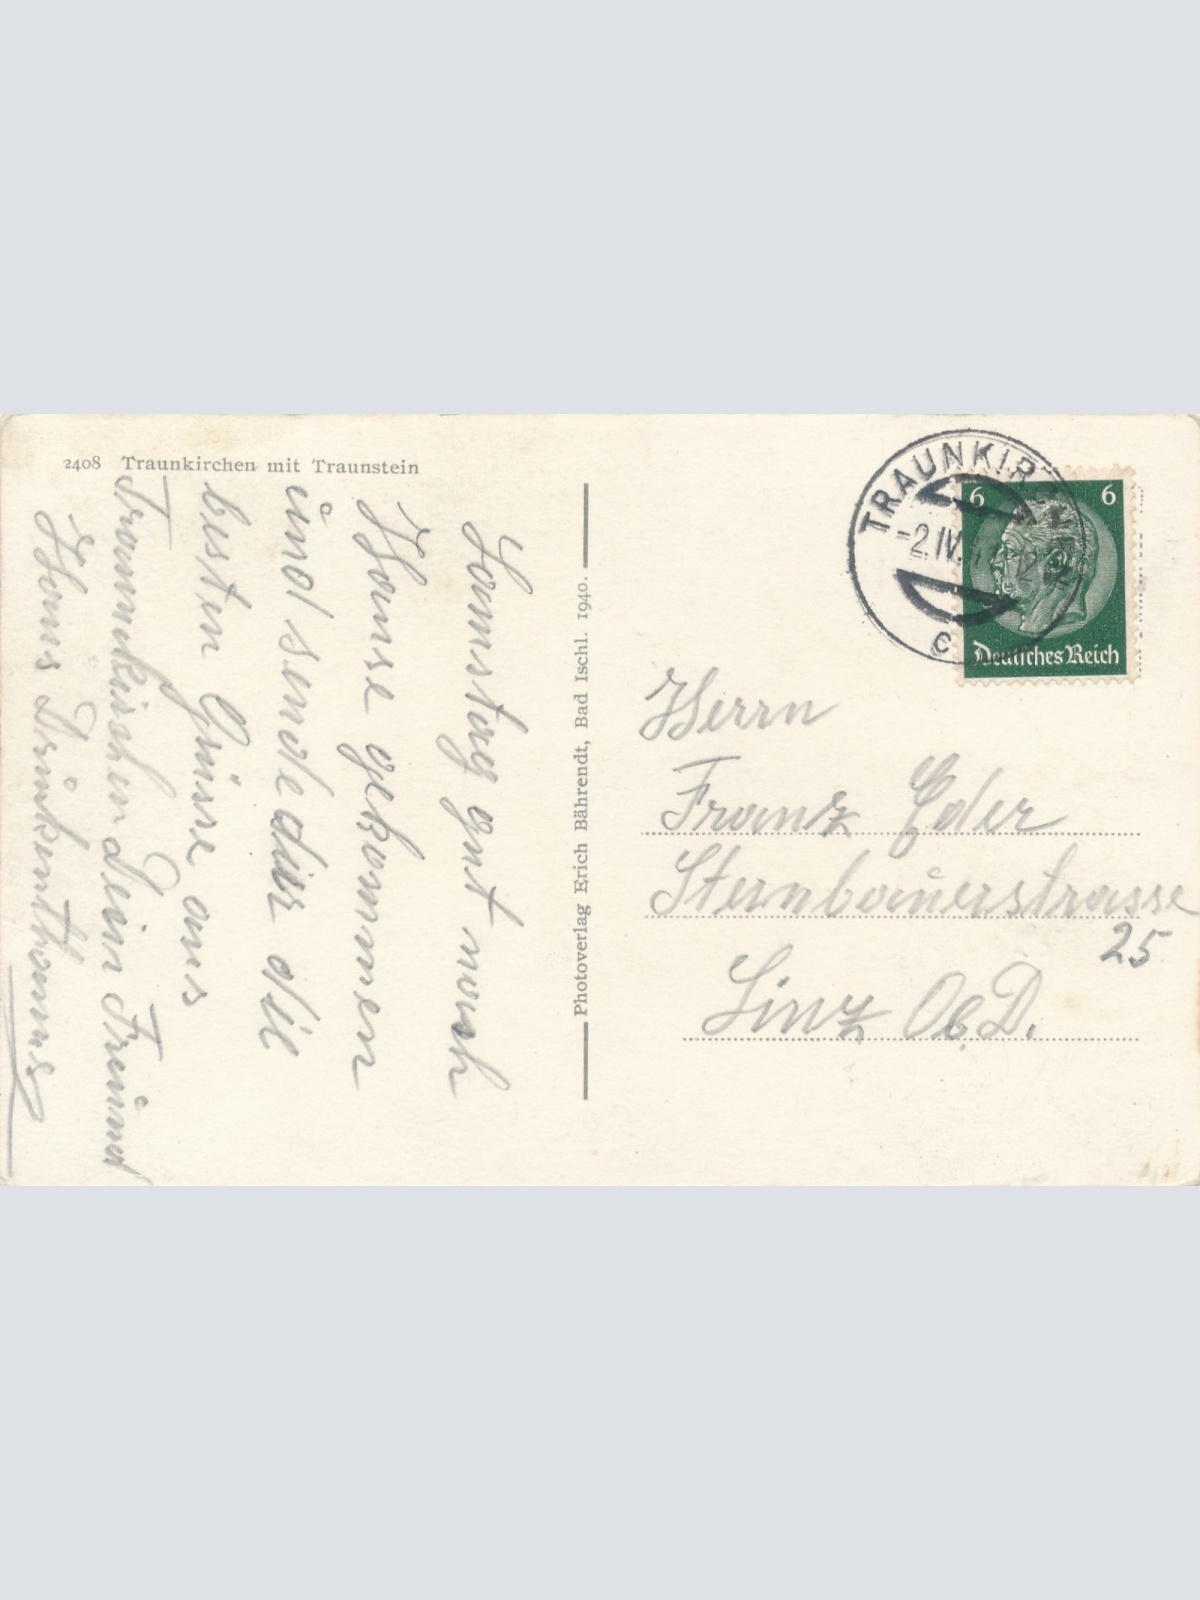 2408 Traunkirchen mit Traunstein
Samstag gut nach
Hause gekommen
und sende dir die
besten Grüsse aus
Traunkirchen Dein Freund
Hans
Photoverlag Erich Bährendt, Bad Ischl. 1940.
TRAUNKIR
-2.IV.
c
6 6
Deutsches Reich
Herrn
Franz Eder
Sternbauerstrasse
25
Linz Ob. D.